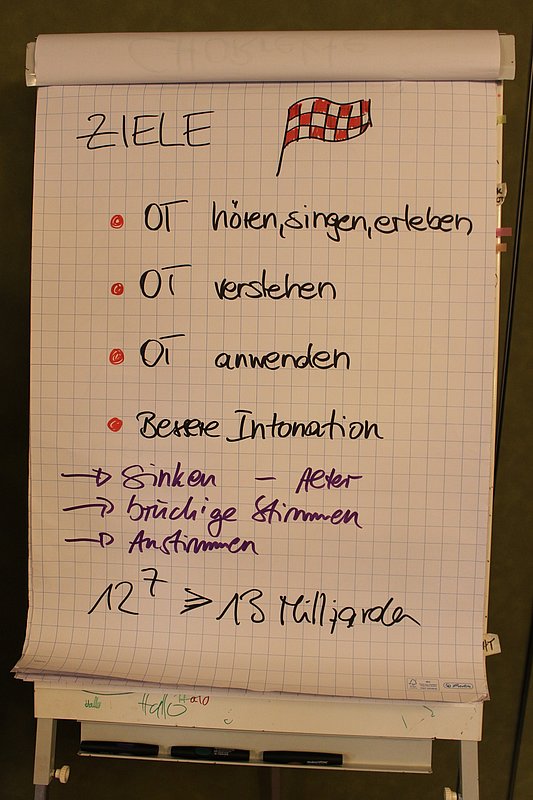 ZIELE
OT hören, singen, erleben
OT verstehen
OT anwenden
Bessere Intonation
→ Sinken – Alter
→ brüchige Stimmen
→ Anstimmen
12⁷ ⩾ 13 Milljarden
Hallo